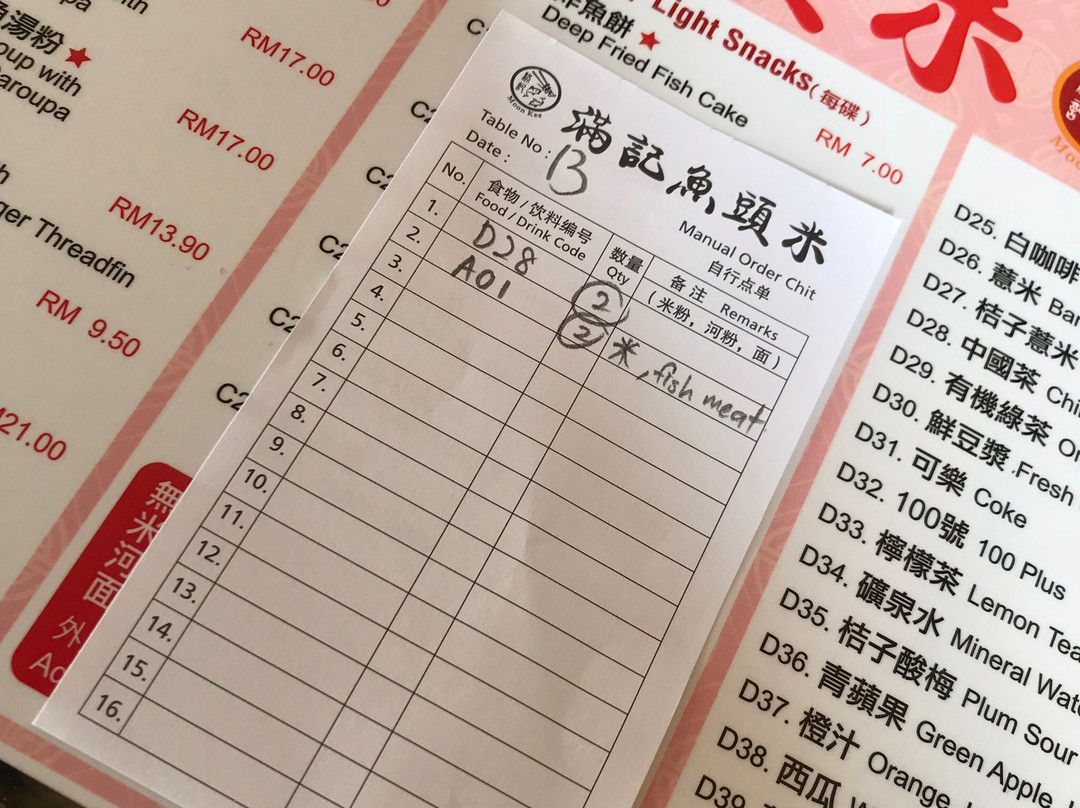 湯粉
oup with
aroupa
RM17.00
RM17.00
RM13.90
ger Threadfin
RM 9.50
21.00
無米河面
外
C2
C2
C2
C2
C2
Light Snacks(每碟)
魚餅
Deep Fried Fish Cake
RM 7.00
米
Moon Kee
滿記魚頭米
Table No : 13
Date :
Manual Order Chit
自行点单
No.
食物 / 饮料编号
Food / Drink Code
数量
Qty
备注 Remarks
(米粉, 河粉, 面)
1. D28 2
2. A01 2 米, fish meat
3.
4.
5.
6.
7.
8.
9.
10.
11.
12.
13.
14.
15.
16.
D25. 白咖啡
D26. 薏米 Bar
D27. 桔子薏米
D28. 中國茶 Chi
D29. 有機綠茶 Or
D30. 鮮豆漿 Fresh
D31. 可樂 Coke
D32. 100號 100 Plus
D33. 檸檬茶 Lemon Tea
D34. 礦泉水 Mineral Wate
D35. 桔子酸梅 Plum Sour
D36. 青蘋果 Green Apple
D37. 橙汁 Orange
D38. 西瓜
D39.